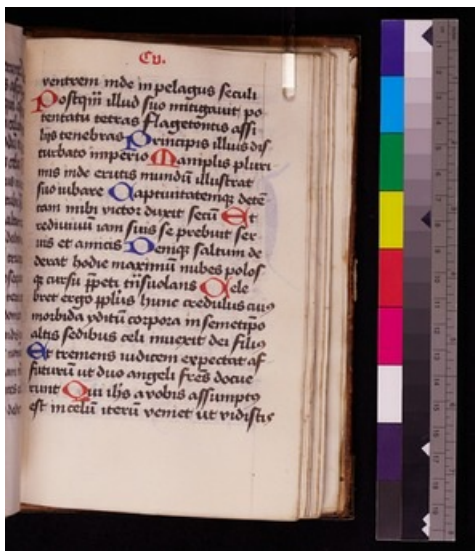 Cv.
ventrem inde in pelagus seculi
Postq̄m illud suo mitigauit po
tentatu tetras flagetontis assi
lijs tenebras Principis illuis dis
turbato imperio Maniplis pluri
mis inde erutis mundū illustrat
suo iubare Captiuitatemq; detē
tam mihi victor duxit secū Et
rediuiuū iam suis se prebuit ser
uis et amicis Deniq; saltum de
derat hodie maximū nubes polos
q; cursu p̄peti trāsuolans Cele
bret ergo p̄plus hunc credulus cuiꝯ
morbida yditū corpora in semetip̄o
altis sedibus celi inuexit dei filiꝯ
Et tremens iudicem expectat af
futurū ut duo angeli frēs docue
runt Qui ihs a vobis assumptꝯ
est in celū iterū veniet ut vidistis